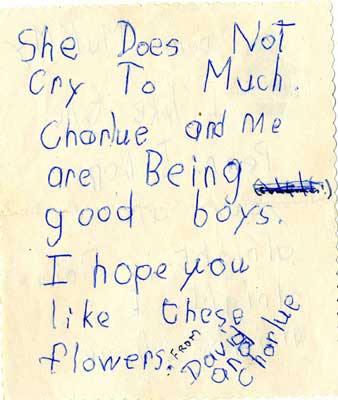 She Does Not
Cry To Much.
Charlue and Me
are Being
good boys.
I hope you
like these
flowers. FROM David
and
Charlue